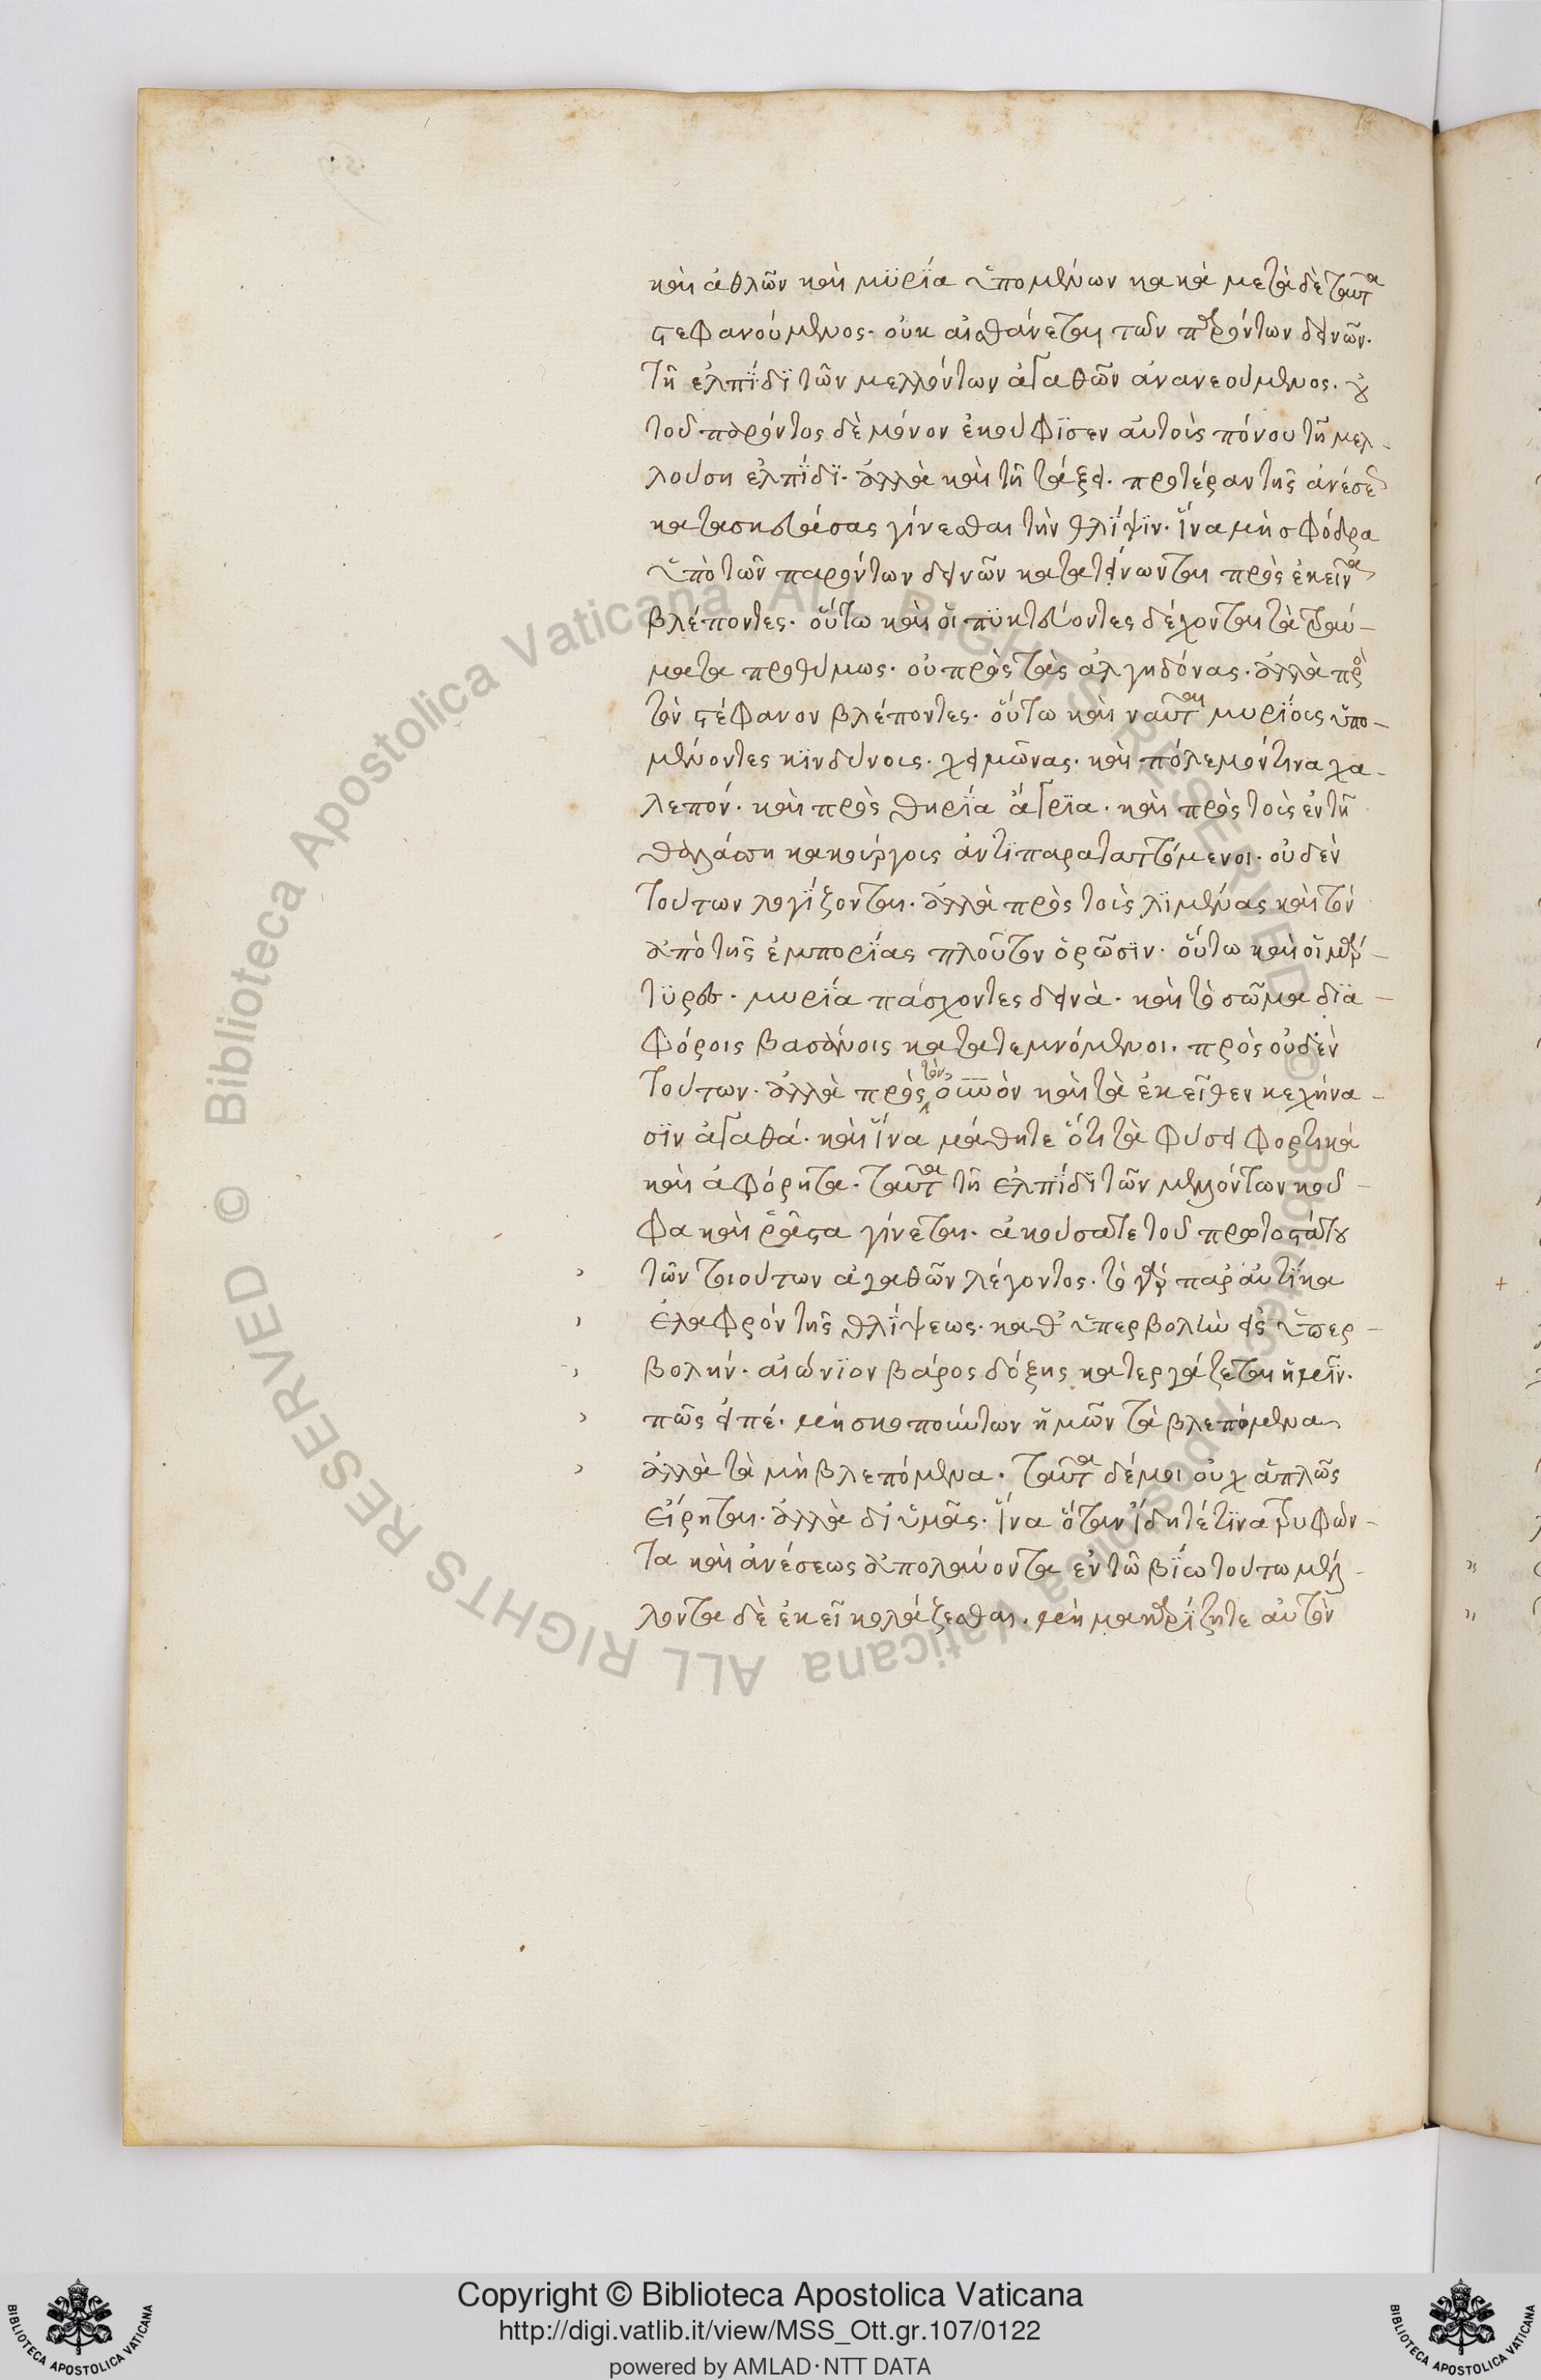 καὶ ἀθλῶν καὶ μϋρΐα ὑπομένων κακὰ μετὰ δὲ ταῦτα
στεφανούμενος· οὐκ αἰσθάνεται τῶν παρόντων δεινῶν·
τῇ ἐλπΐδϊ τῶν μελλόντων ἀγαθῶν ἀνανεούμενος· οὐ
τοῦ παρόντος δὲ μόνον ἐκούφϊσεν αὐτοὶς πόνου τῇ μελ-
λούση ἐλπΐδϊ· ἀλλὰ καὶ τῇ τάξει· προτέραν τῆς ἀνέσε
κατασκευάσας γίνεσθαι τὴν θλΐψϊν· ἵνα μὴ σφόδρα
ὑπὸ τῶν παρόντων δεινῶν κατατείνωνται πρὸς ἐκεῖνα
βλέποντες· οὕτω καὶ οἱ πϋκτεύοντες δέχονται τὰ τραύ-
ματα προθύμως· οὐ πρὸς τὰς ἀλγηδόνας· ἀλλὰ πρὸ
τὸν στέφανον βλέποντες· οὕτω καὶ ναῦται μυρΐοις ὑπο-
μένοντες κϊνδύνοις· χειμῶνας· καὶ πόλεμόν τινα χα-
λεπόν· καὶ πρὸς θηρΐα ἄγρϊα· καὶ πρὸς τοὶς ἐν τῇ
θαλάσση κακούργοις ἀντϊπαραταττόμενοι· οὐδὲν
τούτων λογΐζονται· ἀλλὰ πρὸς τοὶς λϊμένας καὶ τὸν
ἀπὸ τῆς ἐμπορΐας πλοῦτον ὁρῶσϊν· οὕτω καὶ οἱ μάρ-
τϋρες· μυρΐα πάσχοντες δεινὰ· καὶ τὸ σῶμα δϊα-
φόροις βασάνοις κατατεμνόμενοι· πρὸς οὐδὲν
τούτων· ἀλλὰ πρὸς τὸν οὐνὸν καὶ τὰ ἐκεῖθεν κεχήνα-
σϊν ἀγαθά· καὶ ἵνα μάθητε ὅτι τὰ φύσει φορτικά
καὶ ἀφόρητα· ταῦτα τῇ ἐλπΐδϊ τῶν μελλόντων κοῦ-
φα καὶ ῥᾶστα γίνεται· ἀκούσατε τοῦ πρωτοστάτου
τῶν τοιούτων ἀγαθῶν λέγοντος· τὸ γὰρ παραυτΐκα
ἐλαφρόν τῆς θλΐψεως· καθ' ὑπερβολὴν εἰς ὑπερ-
βολὴν· αἰώνϊον βάρος δόξης κατεργάζεται ἡμῖν·
πῶς εἰπέ· μὴ σκοπούντων ἡμῶν τὰ βλεπόμενα
ἀλλὰ τὰ μὴ βλεπόμενα· ταῦτα δέ μοι οὐχ ἁπλῶς
εἴρηται· ἀλλὰ δι' ὑμᾶς· ἵνα ὅταν ἴδητέ τϊνα τρυφῶν-
τα καὶ ἀνέσεως ἀπολαύοντα ἐν τῶ βΐω τούτω μέλ-
λοντα δὲ ἐκεῖ κολάζεσθαι· μὴ μακαρΐζητε αὐτὸν
Copyright © Biblioteca Apostolica Vaticana
http://digi.vatlib.it/view/MSS_Ott.gr.107/0122
powered by AMLAD·NTT DATA
BIBLIOTECA APOSTOLICA VATICANA
BIBLIOTECA APOSTOLICA VATICANA
© Biblioteca Apostolica Vaticana ALL RIGHTS RESERVED © Biblioteca Apostolica Vaticana ALL RIGHTS RESERVED